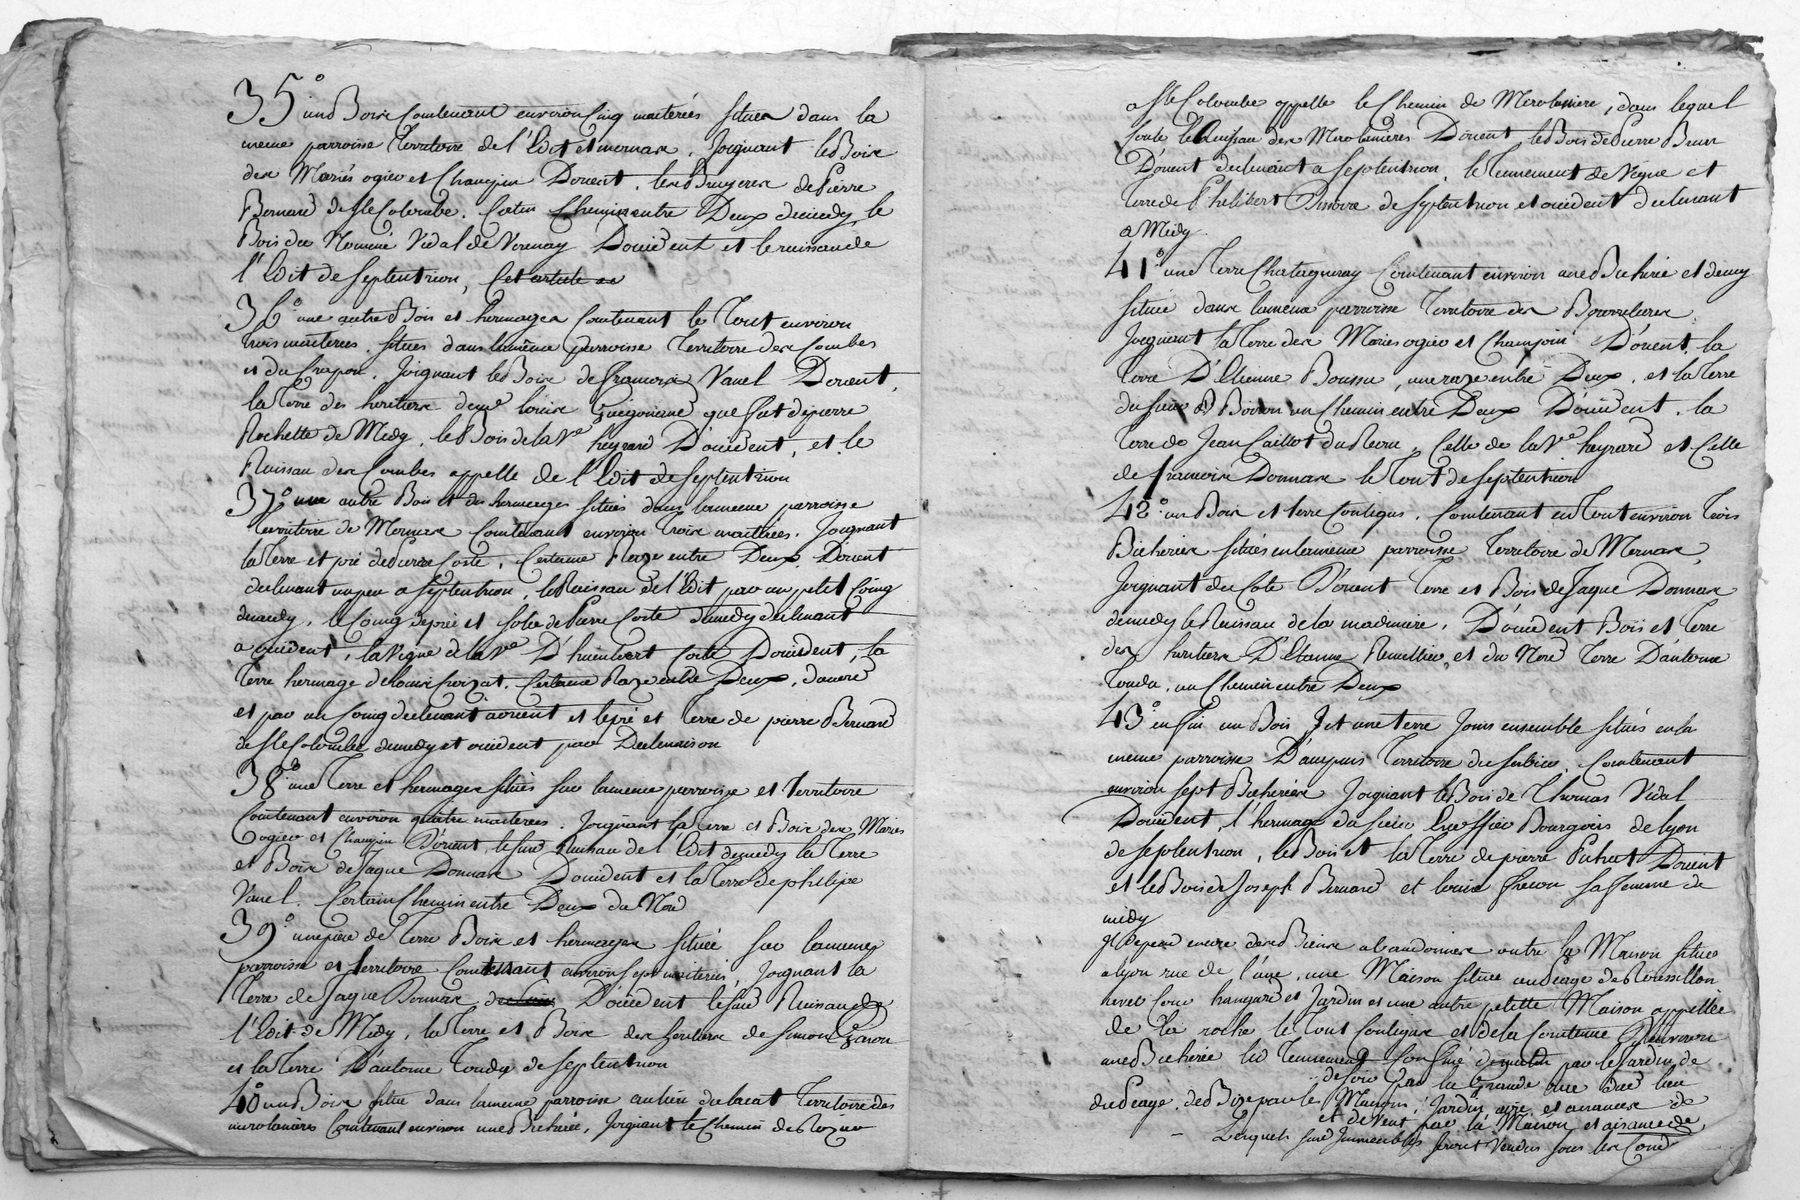 35° un Bois Contenant environ Cinq maiterées situé dans la
meme parroisse Territoire de l'Edit et mornas, Joignant le Bois
des Mariés ogier et Champin Dorient, les Bruyeres de Pierre
Bernard de Ste Colombe, Certin Chemin entre Deux de midy, le
Bois du Nommé Vidal de Verenay Doccident et le ruisseau de
l'Edit de septentrion, Cet article
36° une autre Bois et hermages Contenant le Tout environ
trois maiterees, situés dans la même parroisse Territoire des Combes
et du Crapon, Joignant le Bois de francois Vanel Dorient,
la Terre des heritiers de louise que fut de pierre
Rochette de Midy, le Bois de la Ve heyrard D'occident, et le
Ruisseau des Combes appelle de l'Edit de septentrion
37° une autre Bois et des hermages situés dans la meme parroisse
Territoire de Mornas Contenant environ Trois maiterees, Joignant
la Terre et pré de Pierre Coste, Certaine Raze entre Deux, Dorient
declinant un peu a septentrion, le Ruisseau de l'Edit par un petit Coing
de midy, le Coing de pré et de Pierre Coste de midy declinant
a occident, la Vigne de la Ve D'humbert Coste Doccident, la
Terre hermage de louis Croizat, Certaine Raze entre Deux, du nord
et par un Coing declinant a orient et le pré et Terre de pierre Bernard
de Ste Colombe de midy et occident par Declinaison
38° une Terre et hermages situés sur la meme parroisse et Territoire
Contenant environ quatre maiterees, Joignant la Terre et Bois des Mariés
ogier et Champin D'orient, le sud. Ruisseau de l'Edit de midy la Terre
et Bois de Jaque Donnas Doccident et la Terre de philipe
Vanel, Certain Chemin entre Deux du Nord
39° une piece de Terre Bois et hermages située sur la meme
parroisse et Territoire Contenant environ sept maiterées, Joignant la
Terre de Jaque Donnas D'occident le sud. Ruisseau de
l'Edit de Midy, la Terre et Bois des heritiers de Simon
et la Terre D'antoine Toudy de septentrion
40° un Bois situé dans la meme parroisse au lieu du lacat Territoire des
merolinieres Contenant environ une Bicherée, Joignant le Chemin de
a Ste Colombe appelle le Chemin de Meroliniere, dans lequel
Coule le Ruisseau des Merolinieres Dorient le Bois de Pierre Brun
D'orient declinant a septentrion, le Tennement de Vigne et
Terre de Philibert de septentrion et occident declinant
a Midy
41° une Terre Chataigneray Contenant environ une Bicherée et demy
située dans la meme parroisse Territoire des Bourrelieres
Joignant la Terre des Mariés ogier et Champin D'orient, la
Terre D'Etienne Boussu, une raze entre Deux, et la Terre
du sieur Boiron un Chemin entre Deux D'occident, la
Terre de Jean Caillot du Recru, Celle de la Ve heyrard et Celle
de francois Donnas le Tout de septentrion
42° un Bois et terre Contigus, Contenant en Tout environ Trois
Bicherées situés en la meme parroisse Territoire de Mornas,
Joignant du Coté D'orient Terre et Bois de Jaque Donnas
de midy le Ruisseau de la madiniere, D'occident Bois et Terre
des heritiers D'Etienne Remillier, et du Nord Terre D'antoine
Toudy, un Chemin entre Deux
43° enfin un Bois et une terre Joins ensemble situés en la
meme parroisse D'ampuis Territoire du Contenant
environ sept Bicherées Joignant le Bois de Thomas Vidal
Doccident, l'hermage du sieur Bourgeois de lyon
de septentrion, le Bois et la Terre de pierre Dorient
et le Bois de Joseph Bernard et louise sa femme de
midy
Il depend encore desd. Biens abandonnés outre la Maison située
a lyon rue de l'ane, une Maison située au peage de Roussillon
avec Cour hangard et Jardin et une autre petitte Maison appellée
de la roche le Tout Contigus et de la Contenue D'environ
une Bicherée led Tennement Confiné de matin par le Jardin de
de soir par la Grande Rue dud lieu
du Peage, de Bize par les Maisons, Jardin, aire et aisances de
et de Vent par la Maison et aisances de
Lesquels sud Immeubles seront Vendus sous les Cond